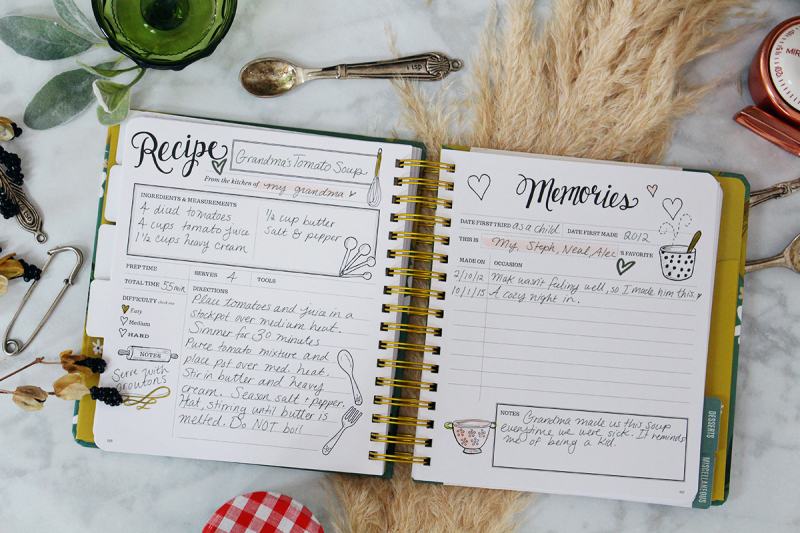 Recipe
Grandma's Tomato Soup
From the kitchen of my grandma
INGREDIENTS & MEASUREMENTS
4 diced tomatoes
4 cups tomato juice
1 1/2 cups heavy cream
1/2 cup butter
Salt & pepper
PREP TIME
SERVES 4
TOOLS
TOTAL TIME 55 min
DIFFICULTY
Easy
Medium
HARD
NOTES
Serve with
croutons
DIRECTIONS
Place tomatoes and juice in a
stockpot over medium heat.
Simmer for 30 minutes
Puree tomato mixture and
place pot over med. heat.
Stir in butter and heavy
cream. Season salt & pepper.
Hat, stirring until butter is
melted. Do NOT boil
Memories
DATE FIRST TRIED as a child DATE FIRST MADE 2012
THIS IS My, Steph, Neal, Alec 'S FAVORITE
MADE ON OCCASION
2/10/12 Mak wasn't feeling well, so I made him this.
10/1/15 A cozy night in.
NOTES
Grandma made us this soup
everytime we were sick. It reminds
me of being a kid.
DESSERTS
MISCELLANEOUS
1 TSP